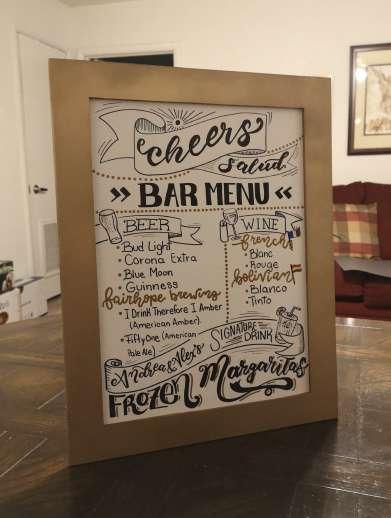 cheers
Salud
» BAR MENU «
BEER
• Bud Light
• Corona Extra
• Blue Moon
• Guinness
fairhope brewing
• I Drink Therefore I Amber
(American Amber)
• FiftyOne (American
Pale Ale)
WINE
french
• Blanc
• Rouge
bolivian
• Blanco
• Tinto
SIGNATURE
DRINK
Andrea & Alex's
FROZEN Margaritas